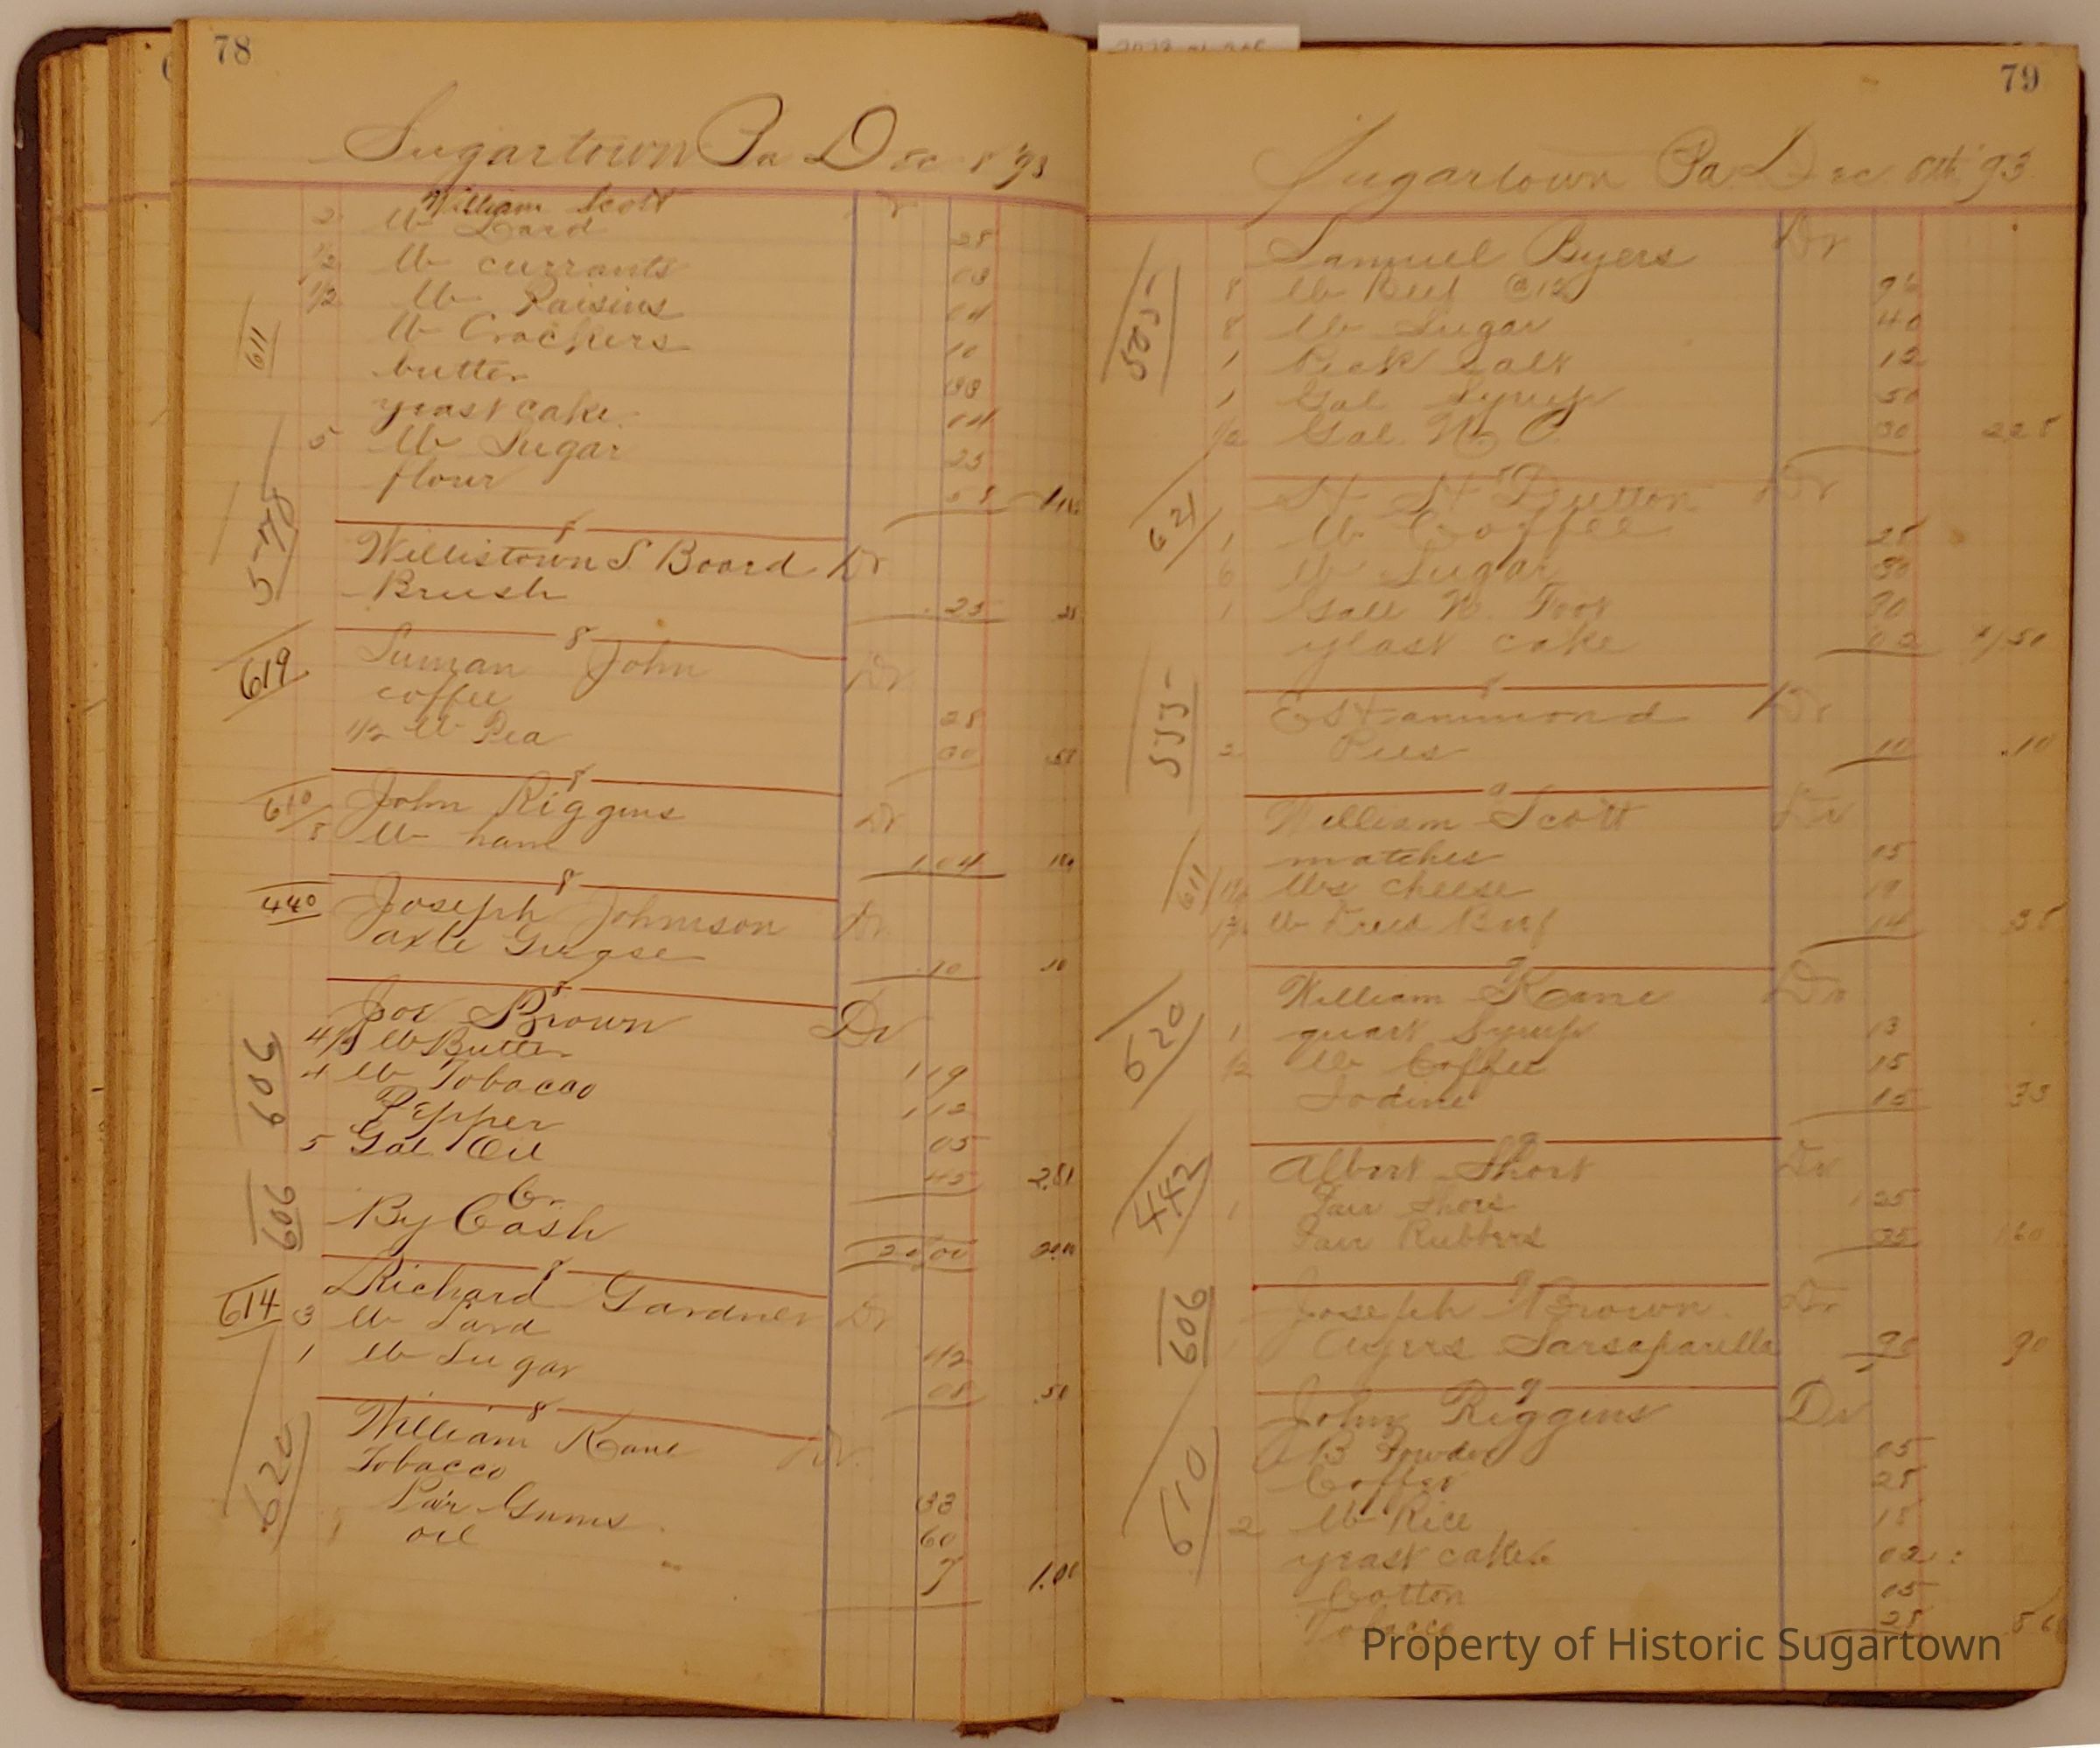 78
Sugartown Pa Dec 8 93
William Scott Dr
2 lb Lard 28
1/2 lb currants 03
1/2 lb Raisins 04
lb Crackers 10
611
butter 33
yeast cake 04
5 lb Sugar 25
flour 08
578
8
Willistown S. Board Dr
Brush .25 25
8
619 John Dr
coffee 28
1/2 lb Pea 30 58
8
610 John Riggins Dr
8 lb ham 1.04 104
8
440 Joseph Johnson Dr
axle Gregse .10 .10
8
Joe Brown Dr
606
lb Butter 119
4 lb Tobacco 112
Pepper 05
5 Gal Oil 45 2.81
Cr
606 By Cash 20 00
8
614 Richard Gardner Dr
3 lb Lard 42
1 lb Sugar 08 .50
8
620 William Kane Dr
Tobacco 33
Pair Gums 60
1 oil 7 1.00
79
Sugartown Pa Dec 8th 93
Samuel Byers Dr
505
8 lb Beef @12 96
8 lb Sugar 40
1 Peck Salt 12
1 Gal Syrup 50
1/2 Gal N O 30 228
8
621 Dutton Dr
1 lb Coffee 28
6 lb Sugar 30
1 Gall N. Foot 90
yeast cake 02 1.50
8
555 E Hammond Dr
2 Pies 10 .10
9
William Scott Dr
611
matches 05
lbs cheese 19
lb Dried Beef 14 38
9
620 William Kane Dr
1 quart Syrup 13
1/2 lb Coffee 15
Iodine
9
442 Albert Short Dr
1 Pair Shoes 1 25
Pair Rubbers 35 160
9
606 Joseph Brown Dr
1 Ayers Sarsaparilla 90 90
9
610 John Riggins Dr
B Powder 05
Coffee 28
2 lb Rice 18
yeast cakes 02
Cotton 05
Tobacco 28
Property of Historic Sugartown